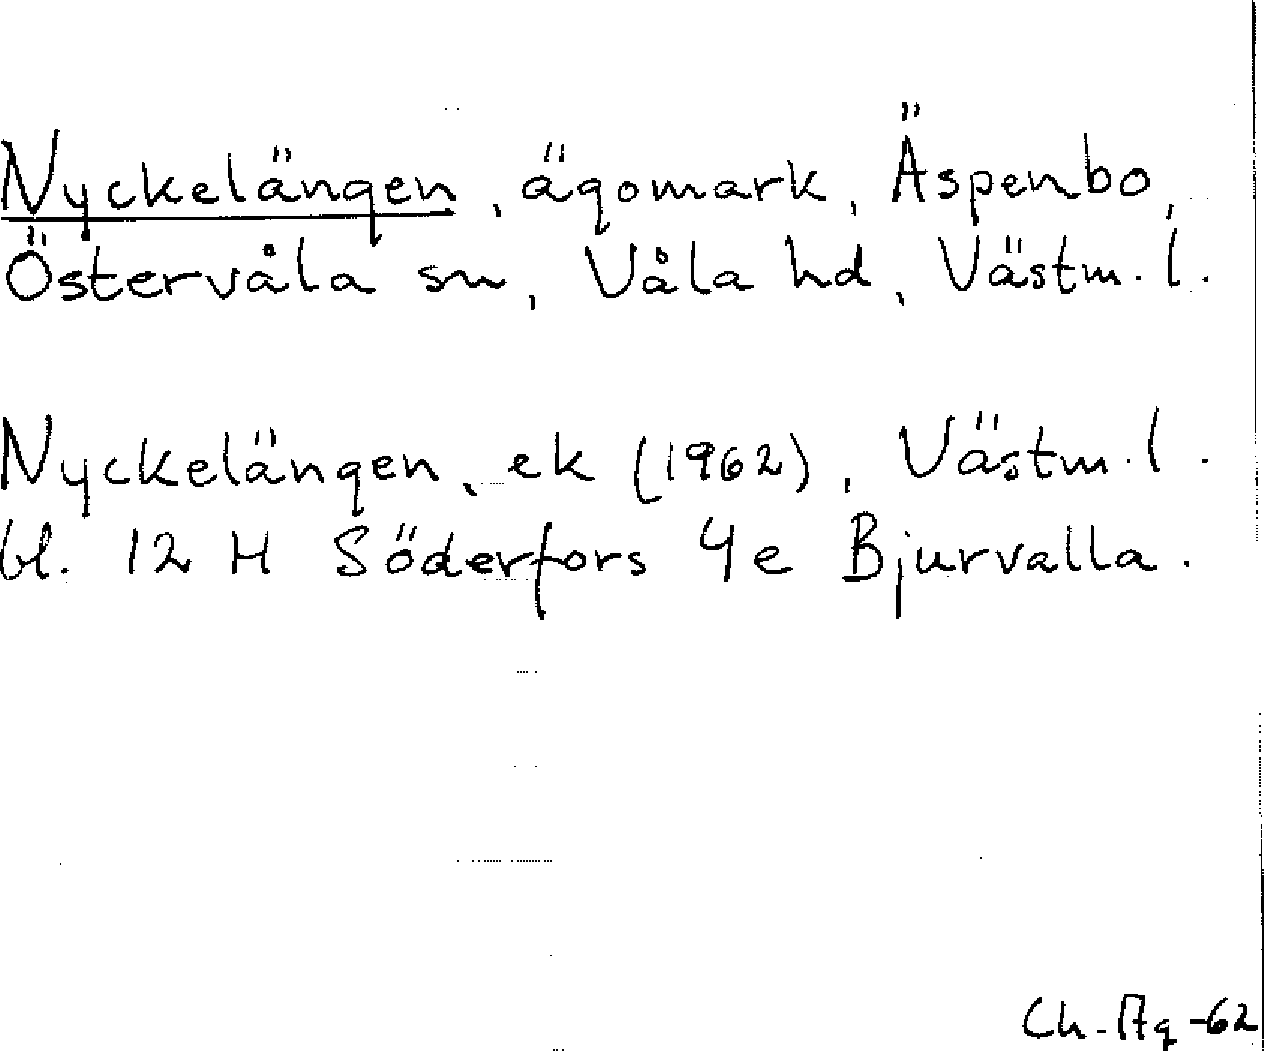 Nyckelängen, ägomark, Äspenbo,
Östervåla sn, Våla hd, Västm. l.
Nyckelängen, ek (1962), Västm. l.
bl. 12 H Söderfors 4e Bjurvalla.
Ch. Ag -62